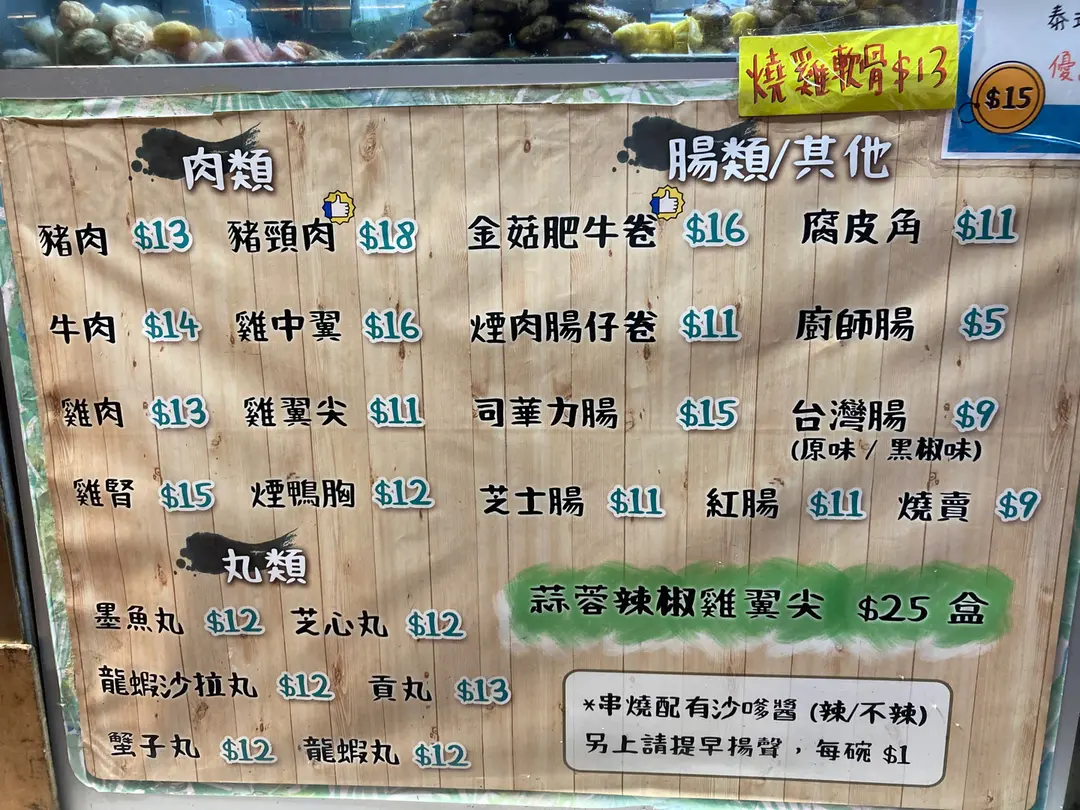 燒雞軟骨$13
$15
肉類
豬肉 $13 豬頸肉 $18
牛肉 $14 雞中翼 $16
雞肉 $13 雞翼尖 $11
雞腎 $15 煙鴨胸 $12
丸類
墨魚丸 $12 芝心丸 $12
龍蝦沙拉丸 $12 貢丸 $13
蟹子丸 $12 龍蝦丸 $12
腸類/其他
金菇肥牛卷 $16 腐皮角 $11
煙肉腸仔卷 $11 廚師腸 $5
司華力腸 $15 台灣腸 $9
(原味 / 黑椒味)
芝士腸 $11 紅腸 $11 燒賣 $9
蒜蓉辣椒雞翼尖 $25 盒
*串燒配有沙嗲醬 (辣/不辣)
另上請提早揚聲，每碗 $1